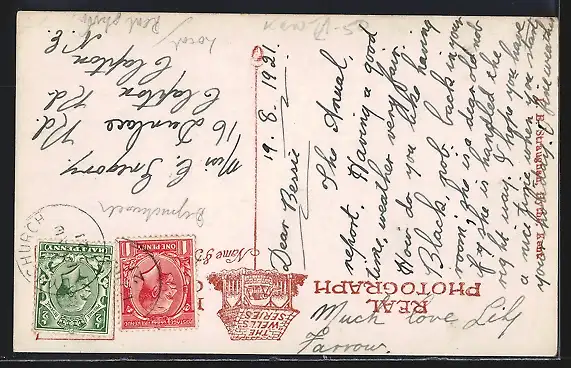 19.8.1921.
Dear Bessie
The Anual
report. Having a good
time, weather very fair.
How do you like having
Black, pob, back in your
room, she is a dear old
if she is handled the
right way. I hope you have
a nice time when you start
your holiday.
Much love Lily
Farrow.
Miss C. Gregory
16 Dunlace Rd.
Clapton Rd.
Clapton
N.E.
REAL
PHOTOGRAPH
THE
WELLS
SERIES
CHURCH
POSTAGE
ONE PENNY
HALFPENNY
Real photo